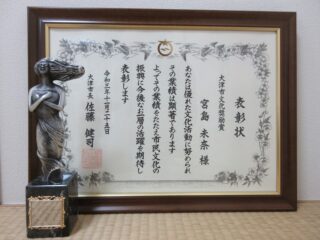 表彰状
大津市文化奨励賞
宮島未奈様
あなたは優れた文化活動に努められ
その業績は顕著であります
よってその業績をたたえ市民文化の
振興に今後なお一層の活躍を期待し
表彰します
令和三年十一月二十五日
大津市長 佐藤健司